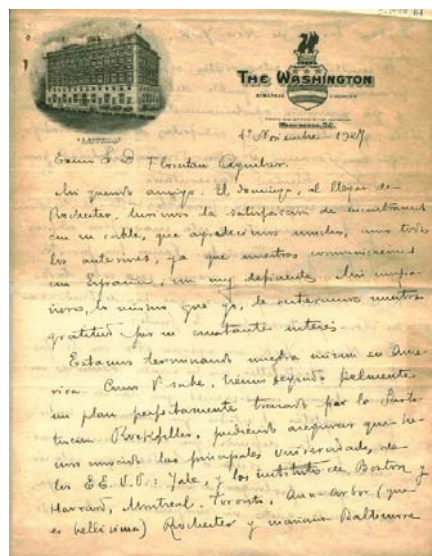 THE WASHINGTON
1º Noviembre 1927
Excmo S. D Florestan Aguilar.
Mi querido amigo: El domingo, al llegar de
Rochester, tuvimos la satisfacción de encontrarnos
con su cable, que agradecimos mucho, como todos
los anteriores, ya que nuestras comunicaciones
con España, son muy deficientes. Mis compa-
ñeros, lo mismo que yo, le reiteramos nuestra
gratitud por su constante interés.
Estamos terminando nuestra misión en Ame-
rica. Como V sabe, hemos seguido fielmente
un plan perfectamente trazado por la
Rockfeller, pudiendo asegurar que he-
mos conocido las principales Universidades, de
los EE. U.U.: Yale, y los institutos de Boston y
Harvard, Montreal. Toronto: Ann-Arbor (que
es bellísima) Rochester y mañana Baltimore